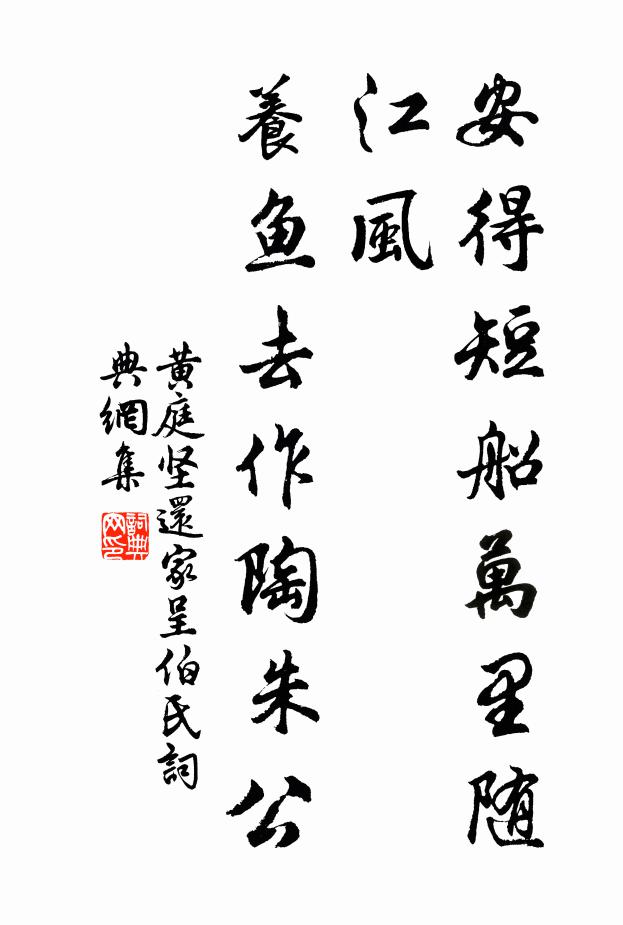 安得短船萬里随
江風
養鱼去作陶朱公
黄庭坚還家呈伯氏詞
典網集
詞典
网印